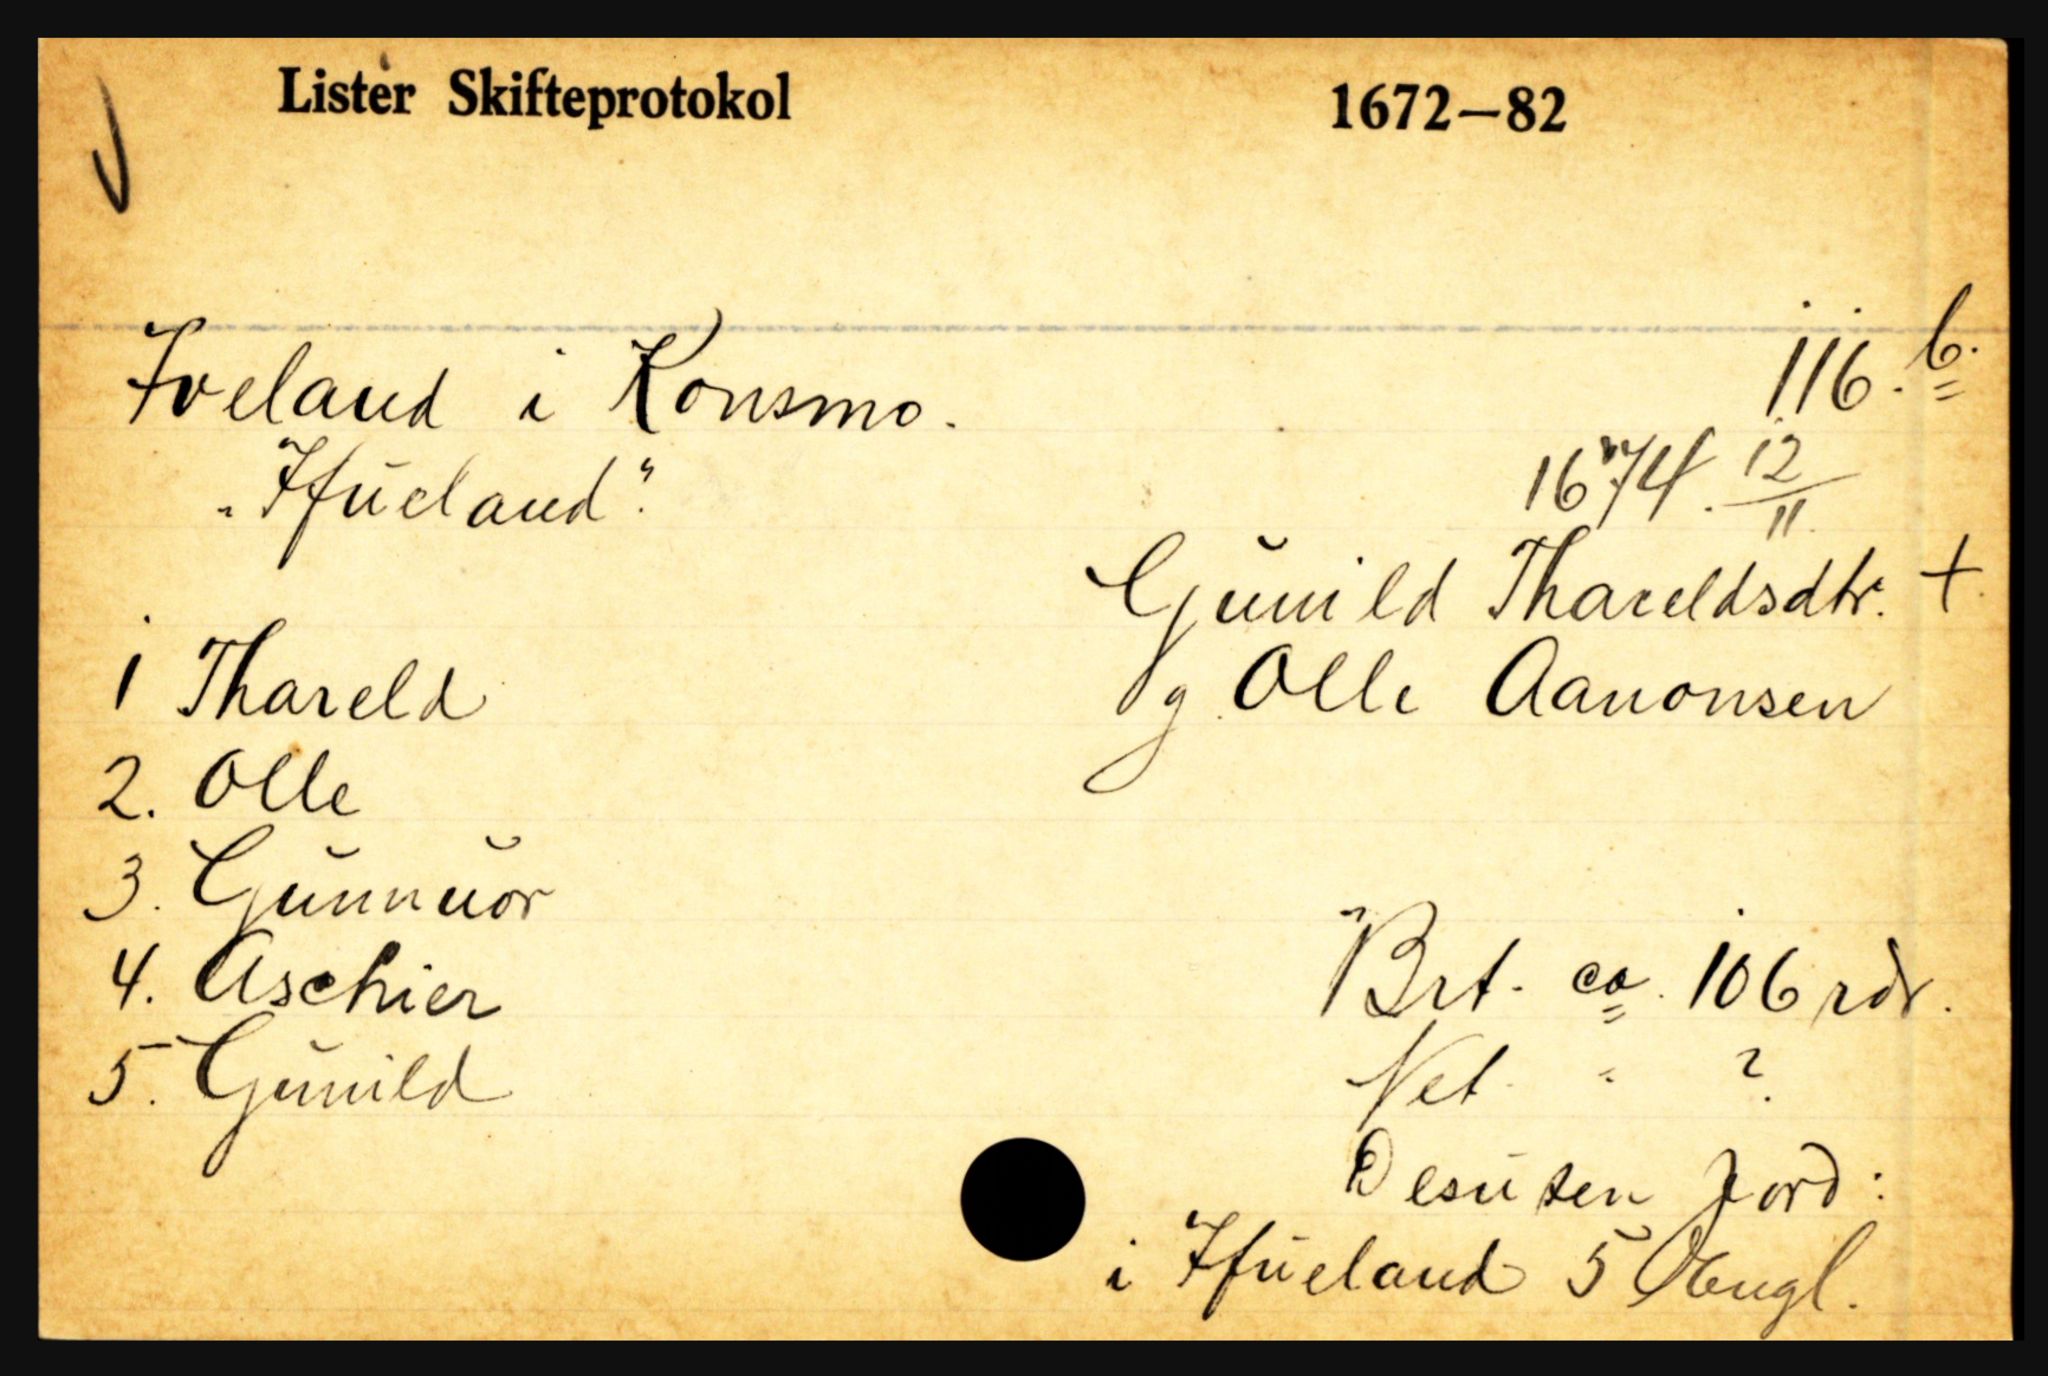 Lister Skifteprotokol 1672—82
Iveland i Konsmo. 116.b.
„Ifŭeland“. 1674. 12/11
Gŭnild Thareldsdtr. +
g. Olle Aanonsen
1 Thareld
2. Olle
3. Gŭnnŭor
4. Aschier
5. Gŭnild
Brt. ca. 106 rdr.
Net. " ?
Desŭten Jord:
i Ifŭeland 5 Engl.